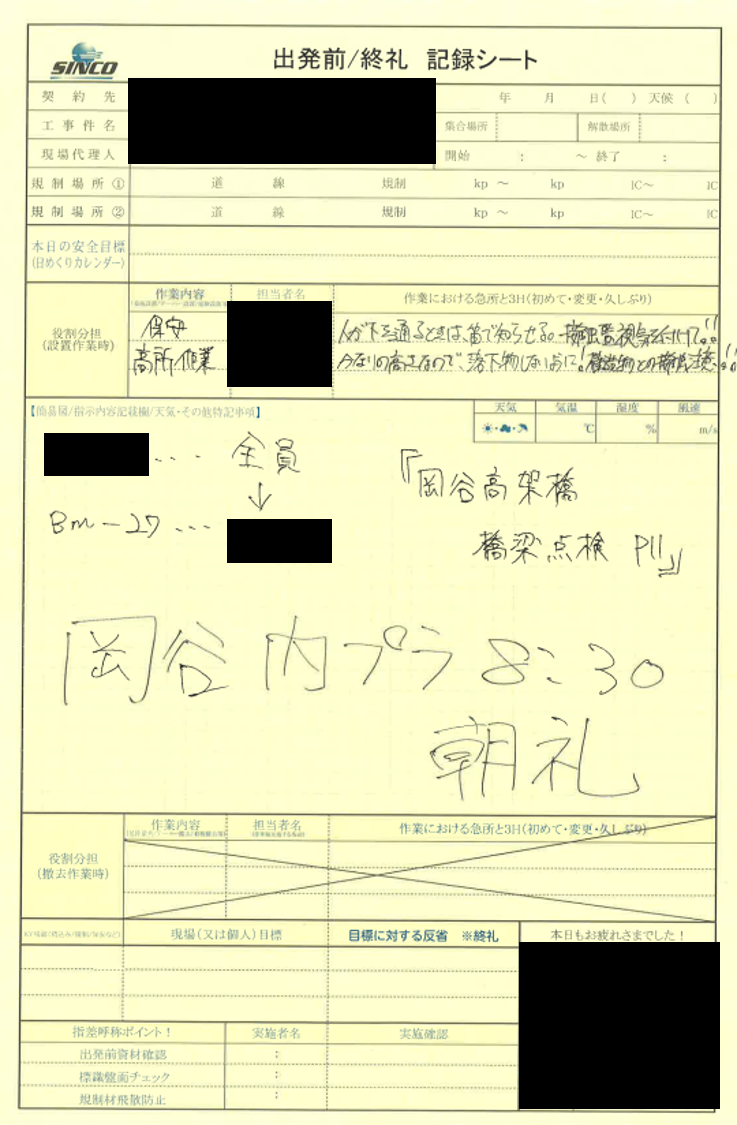 SINCO
出発前/終礼 記録シート
契約先
年 月 日( ) 天候 ( )
工事件名
集合場所 解散場所
現場代理人
開始 : ～ 終了 :
規制場所① 道 線 規制 kp ～ kp IC～ IC
規制場所② 道 線 規制 kp ～ kp IC～ IC
本日の安全目標
(日めくりカレンダー)
作業内容 担当者名 作業における急所と3H(初めて・変更・久しぶり)
役割分担
(設置作業時)
保安 人が下を通るときは、笛で知らせる。
高所作業 かなりの高さなので、落下物しないように!
【簡易図/指示内容記載欄/天気・その他特記事項】
天気 気温 湿度 風速
℃ % m/s
... 全員
↓
BM-27 ...
『岡谷高架橋
橋梁点検 P11』
岡谷内プラ 8:30
朝礼
作業内容 担当者名 作業における急所と3H(初めて・変更・久しぶり)
役割分担
(撤去作業時)
現場(又は個人)目標 目標に対する反省 ※終礼 本日もお疲れさまでした!
指差呼称ポイント! 実施者名 実施確認
出発前資材確認 :
標識盤面チェック :
規制材飛散防止 :